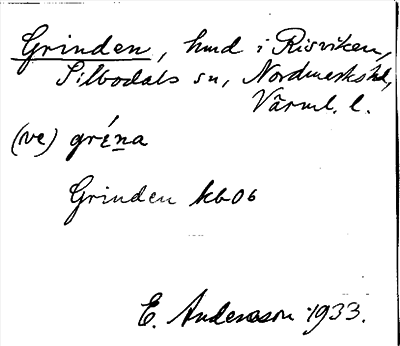 Grinden, hmd i Risviken,
Silbodals sn, Nordmarks hd,
Värml. l.
(ve) gréna
Grinden kb06
E. Andersson 1933.